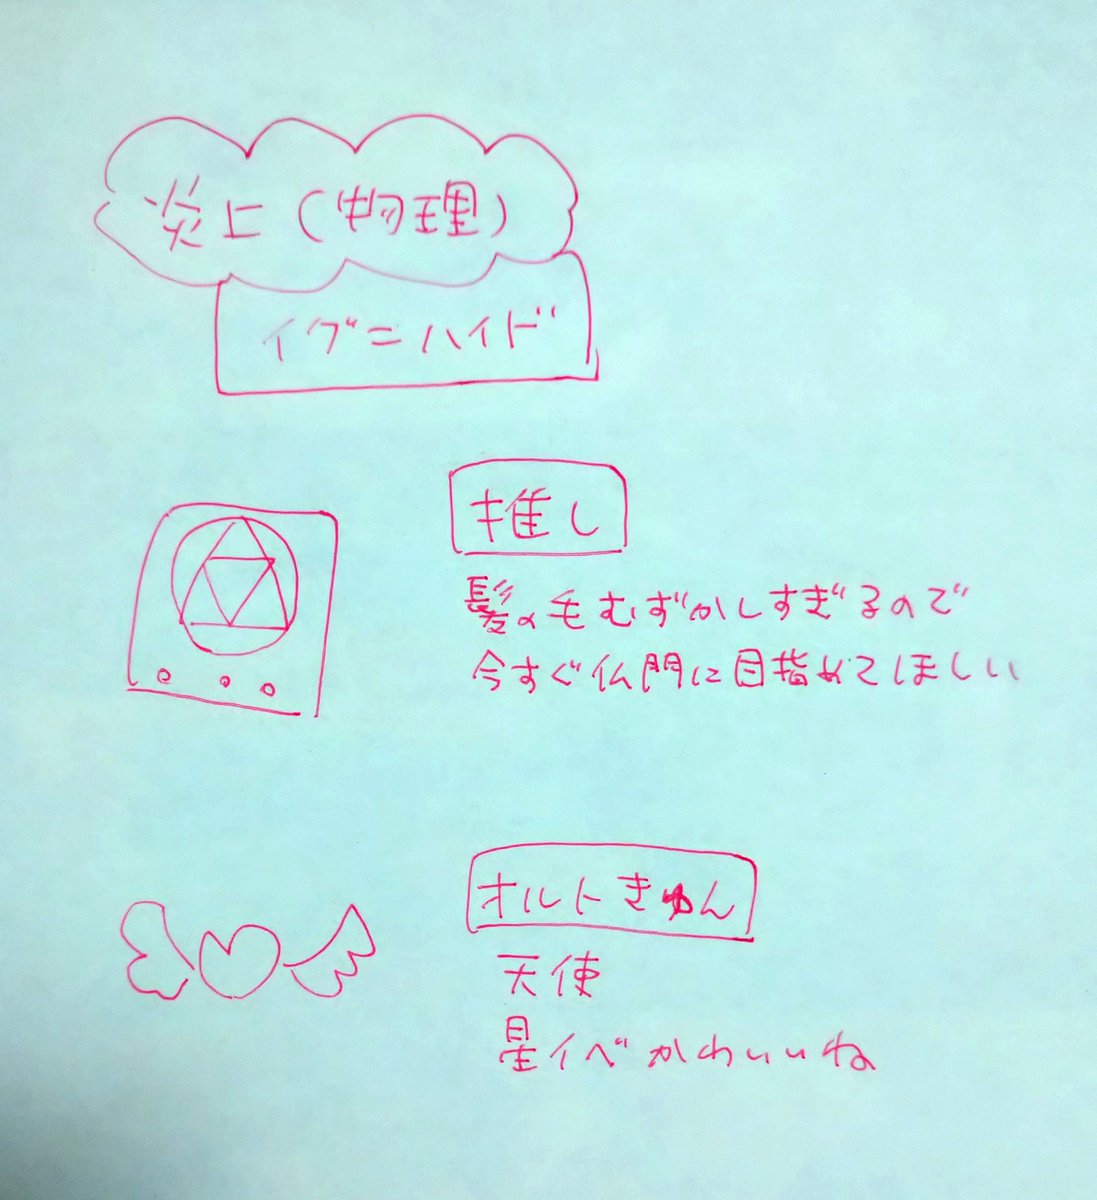 炎上(物理)
イグニハイド
推し
髪の毛むずかしすぎるので
今すぐ仏門に目指めてほしい
オルトきゅん
天使
星イベかわいいね